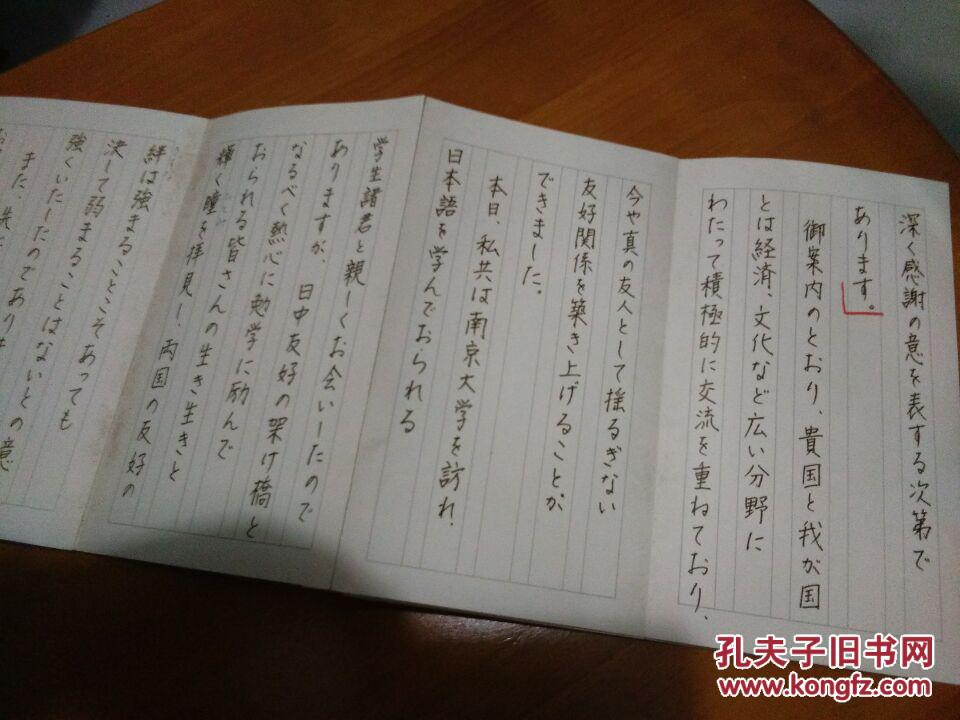 深く感謝の意を表する次第で
あります。
御案内のとおり、貴国と我が国
とは経済、文化など広い分野に
わたって積極的に交流を重ねており、
今や真の友人として揺るぎない
友好関係を築き上げることが
できました。
本日、私共は南京大学を訪れ、
日本語を学んでおられる
学生諸君と親しくお会いしたので
ありますが、日中友好の架け橋と
なるべく熱心に勉学に励んで
おられる皆さんの生き生きと
輝く瞳を拝見し、両国の友好の
絆は強まることこそあっても
決して弱まることはないとの意
強くいたしたのであり
また、先
孔夫子旧书网
www.kongfz.com